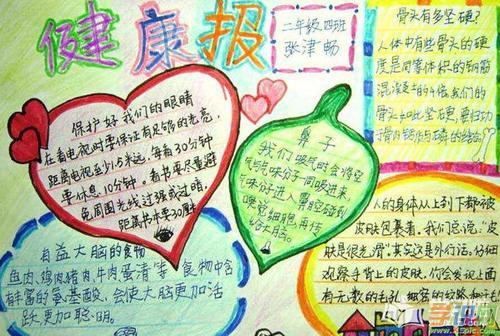 健康报
二年级四班
张津畅
骨头有多坚硬?
人体中有些骨头的硬
度是同等体积的钢筋
混凝土的4倍我们的
骨头如此坚硬,要归功
保护好我们的眼睛
在看电视时要保证有足够的光亮,
距离电视至少3米远,每看30分钟
要休息10分钟。看书要尽量避
免周围光线过强或过暗,
距离书本要30厘
鼻子
我们吸气时会将空
气与气味分子一同吸进来,
气味分子进入鼻腔碰到
嗅觉细胞再传
给大脑。
有益大脑的食物
鱼肉,鸡肉猪肉,牛肉蛋清等食物中含
有丰富的氨基酸,会使大脑更加活
跃,更加聪明。
人的身体从上到下都被
皮肤包裹着。我们总说:“皮
肤是很光滑”,其实这是外行话。仔细
观察手背上的皮肤,你会发现上面
有无数的毛孔